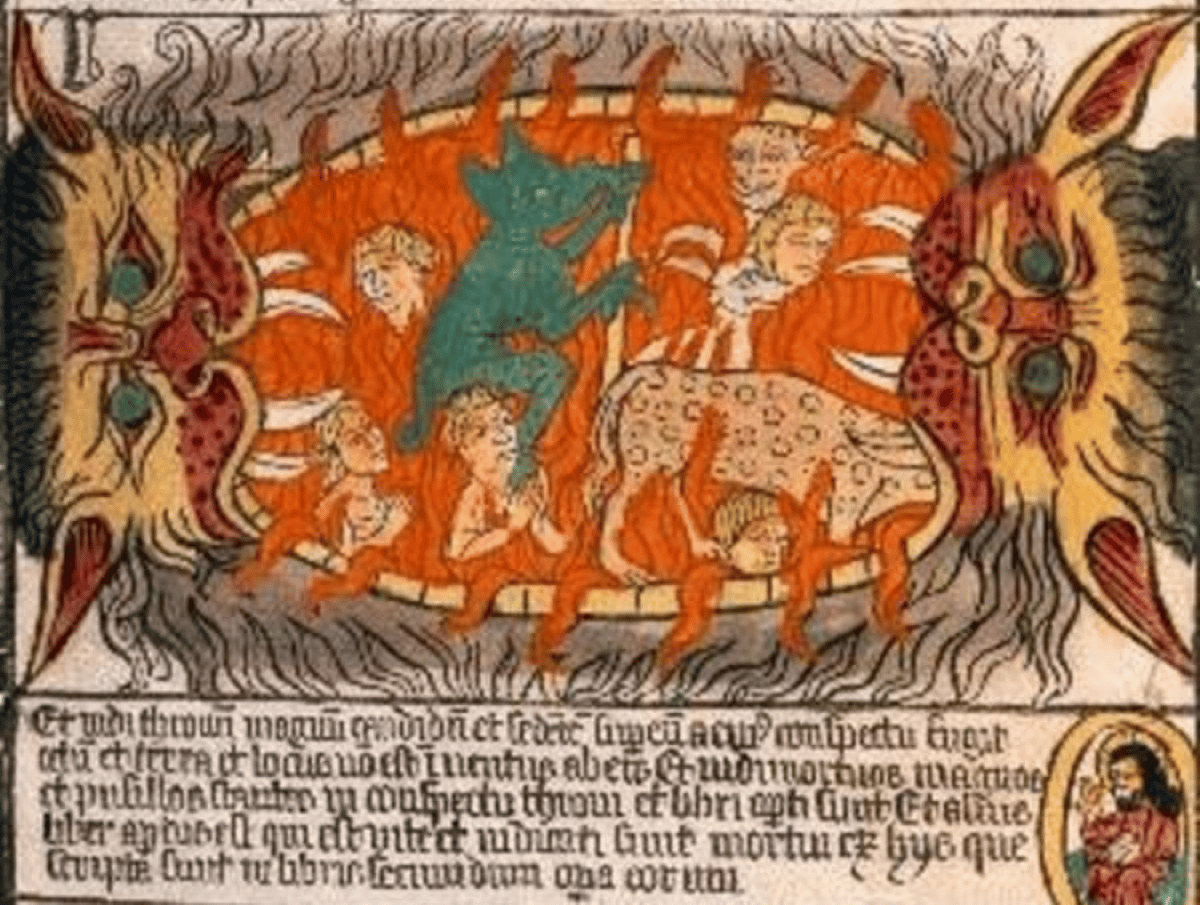 Et vidi thronū magnū candidū et sedētē sup eū a cuiꝰ conspectu fugit
celū et terra et locus nō est īuentus ab eis Et vidi mortuos magnos
et pusillos stantes in conspectu throni et libri apti sunt Et alius
liber aptus est qui est vite et iudicati sunt mortui ex hys que
scripta sunt in libris secundum opa eorum